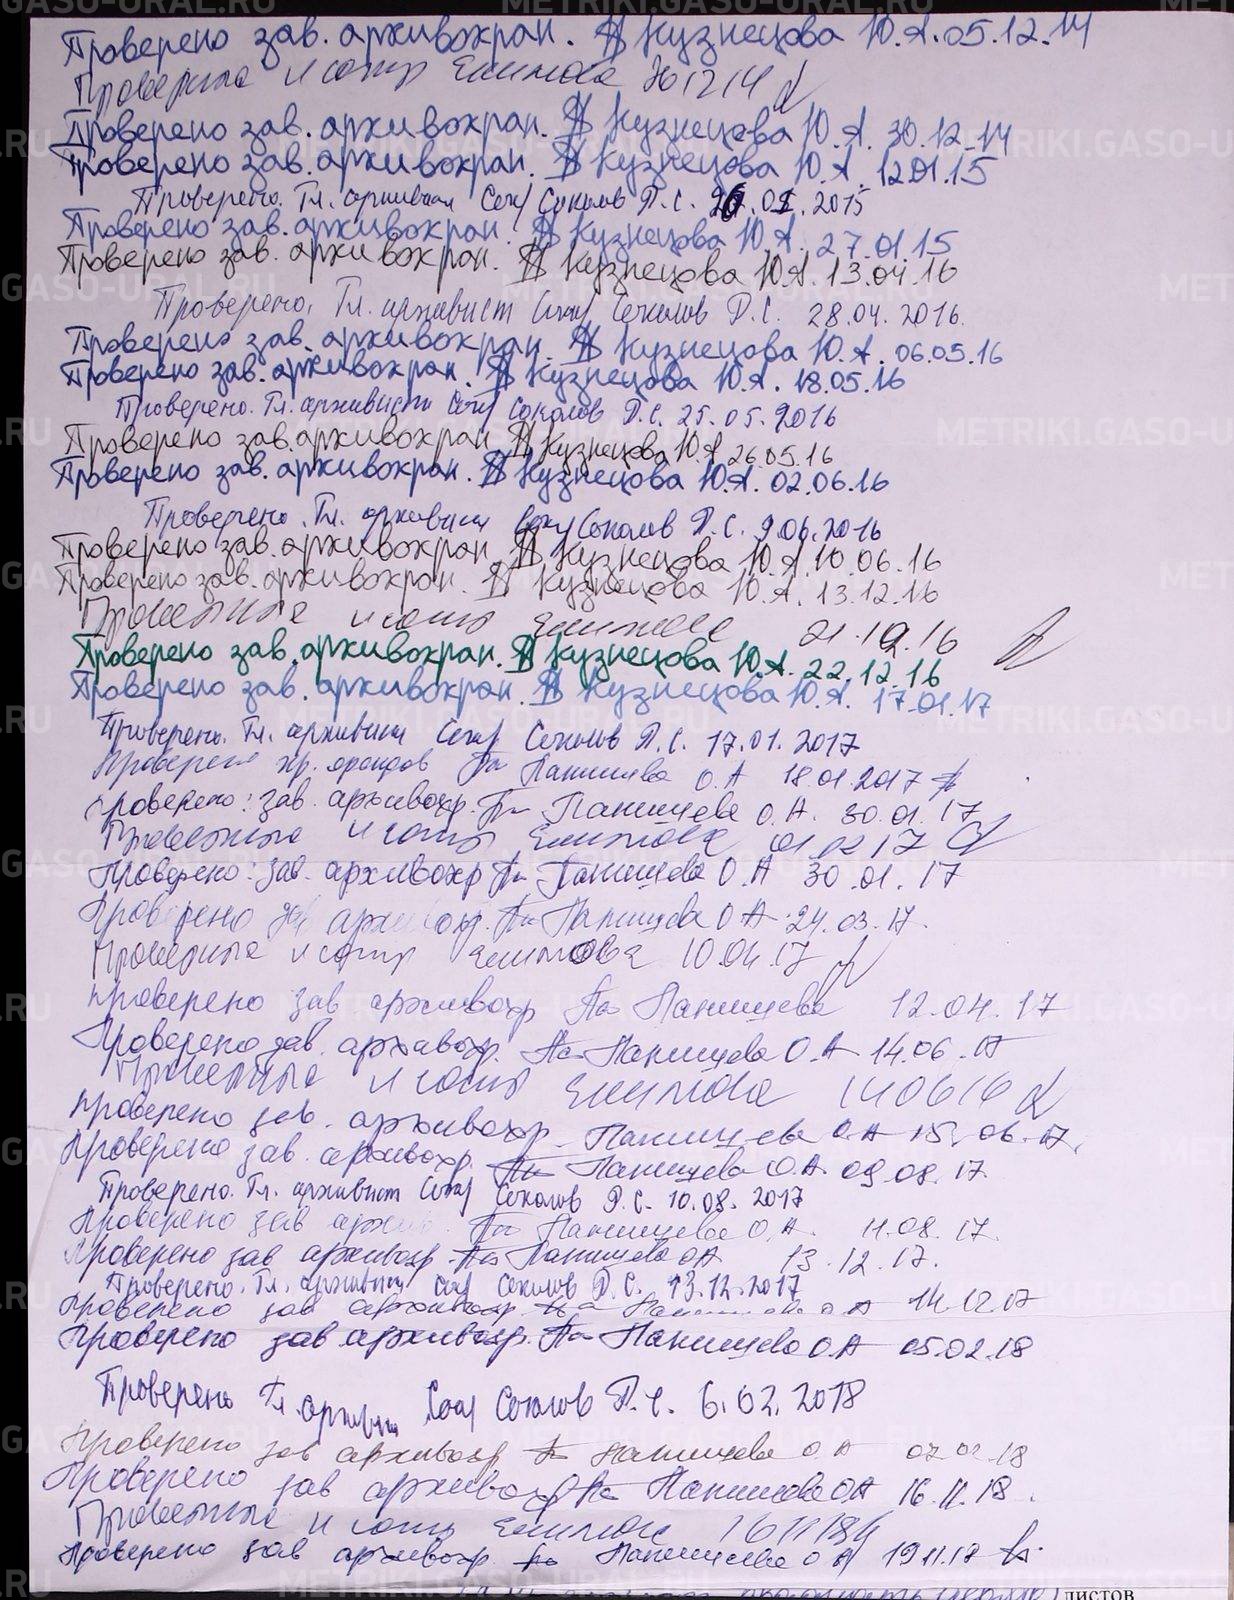 Проверено зав. архивохран. Кузнецова Ю.А. 05.12.14
301214
Проверено зав. архивохран. Кузнецова Ю.А. 30.12.14
Проверено зав. архивохран. Кузнецова Ю.А. 12.01.15
Проверено. Гл. архивист Соколов Д.С. 01. 2015
Проверено зав. архивохран. Кузнецова Ю.А. 27.01.15
Проверено зав. архивохран. Кузнецова Ю.А. 13.04.16
Проверено. Гл. архивист Соколов Д.С. 28.04.2016.
Проверено зав. архивохран. Кузнецова Ю.А. 06.05.16
Проверено зав. архивохран. Кузнецова Ю.А. 18.05.16
Проверено. Гл. архивист Соколов Д.С. 25.05.2016
Проверено зав. архивохран. Кузнецова Ю.А. 26.05.16
Проверено зав. архивохран. Кузнецова Ю.А. 02.06.16
Проверено. Гл. архивист Соколов Д.С. 9.06.2016
Проверено зав. архивохран. Кузнецова Ю.А. 10.06.16
Проверено зав. архивохран. Кузнецова Ю.А. 13.12.16
21.12.16
Проверено зав. архивохран. Кузнецова Ю.А. 22.12.16
Проверено зав. архивохран. Кузнецова Ю.А. 17.01.17
Проверено. Гл. архивист Соколов Д.С. 17.01.2017
Проверено хр. фондов Панищева О.А 18.01.2017
Проверено: зав. архивохр. Панищева О.А. 30.01.17
01 02 17
Проверено: зав. архивохр Панищева О.А 30.01.17
Проверено зав архивохр. Панищева О.А. 24.03.17.
10 04 17
Проверено зав архивохр Панищева 12.04.17
Проверено зав. архивохр. Панищева О.А 14.06.17
Проверено зав. архивохр. Панищева О.А 15.06.17.
Проверено зав. архивохр. Панищева О.А. 09.08.17.
Проверено. Гл. архивист Соколов Д.С. 10.08.2017
Проверено зав архив Панищева О.А. 11.08.17.
Проверено зав архивохр. Панищева ОА 13.12.17.
Проверено. Гл. архивист Соколов Д.С. 13.12.2017
Проверено зав архивохр. Панищева О А 14.12.17
Проверено зав архивохр. Панищева О.А 05.02.18
Проверено Гл. архивист Соколов Д.С. 6.02.2018
Проверено зав архивохр Панищева О.А 07.02.18
Проверено зав архивохр Панищева О.А 16.11.18.
161118
Проверено зав архивохр. Панищева О.А 19.11.17
листов
METRIKI.GASO-URAL.RU